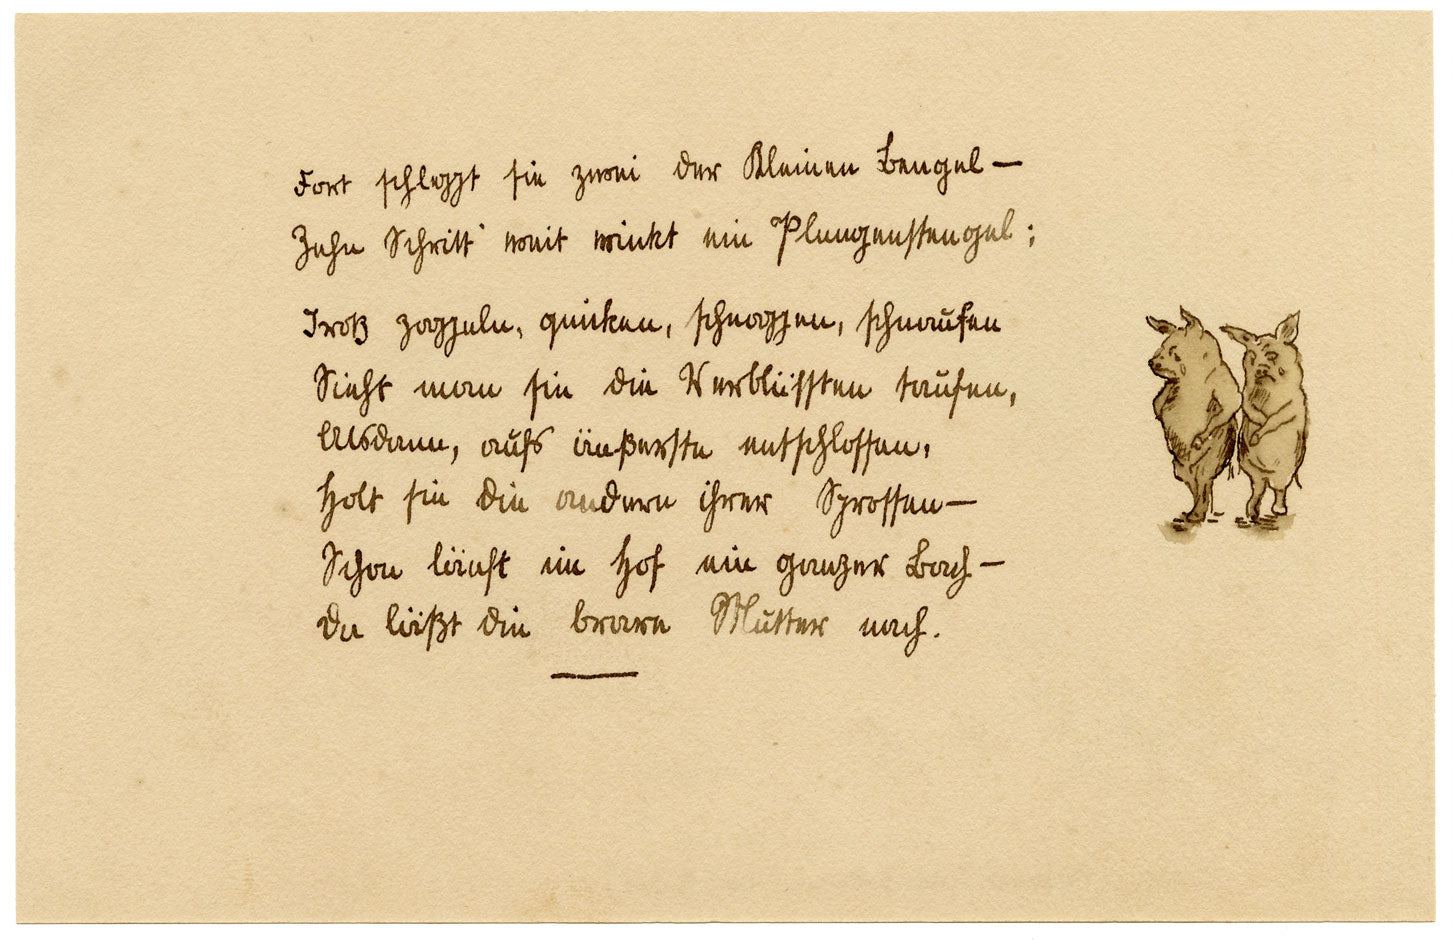 Fort schleppt sie zwei der kleinen Bengel —
Zehn Schritt' weit winkt ein Plumpenstengel;
Trotz zappeln, quieken, schnappen, schnaufen
Sieht man sie die Verblüfften taufen,
Alsdann, aufs äußerste entschlossen,
Holt sie die andern ihrer Sprossen —
Schon läuft im Hof ein ganzer Bach —
Da läßt die brave Mutter nach.